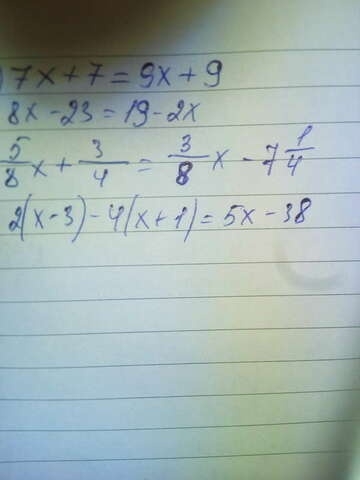 ) 7x + 7 = 9x + 9
8x - 23 = 19 - 2x
5/8 x + 3/4 = 3/8 x - 7 1/4
2(x - 3) - 4(x + 1) = 5x - 38